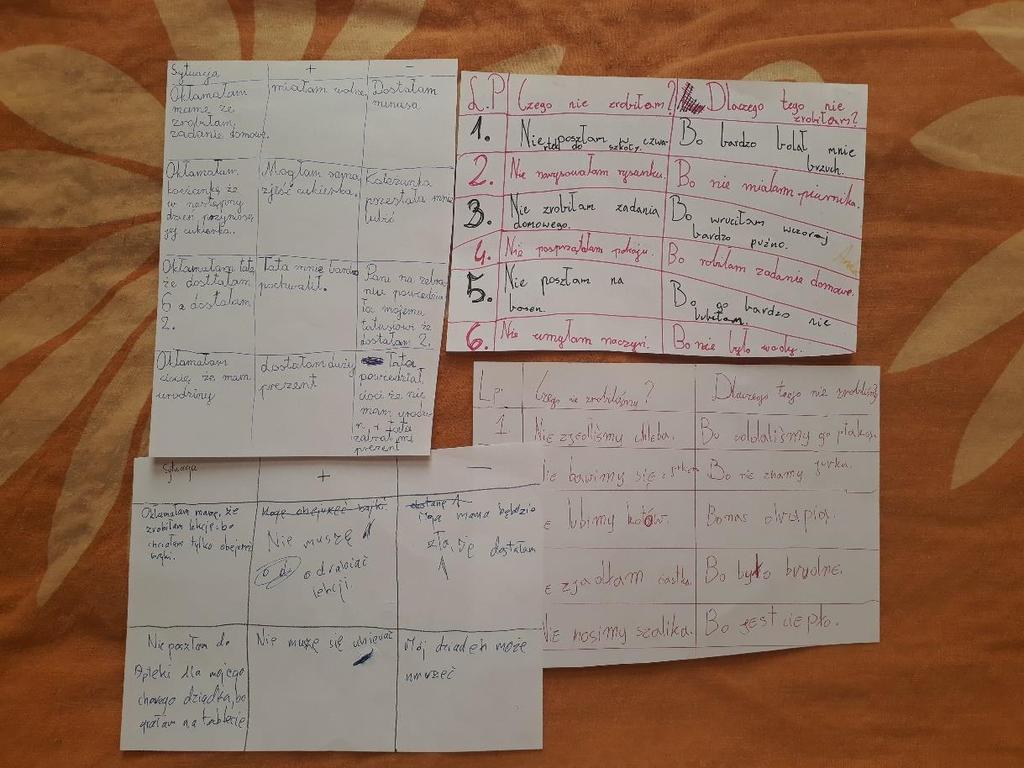 Sytuacja + -
Okłamałam
mamę że
zrobiłam
zadanie domowe.
miałam wolne
Dostałam
minusa
Okłamałam
koleżankę że
w następny
dzień przyniosę
jej cukierka.
Mogłam sama
zjeść cukierka.
Koleżanka
przestała mnie
lubić
Okłamałam tatę
że dostałam
6 a dostałam
2.
Tata mnie bardzo
pochwalił.
Pani na zebra-
niu powiedzia-
ła mojemu
tatusiowi że
dostałam 2.
Okłamałam
ciocię, że mam
urodziny
dostałam duży
prezent
Tata
powiedział
cioci że nie
mam urodzi
n, i tata
zabrał mi
prezent
L.P Czego nie zrobiłam? Dlaczego tego nie
zrobiłam?
1. Nie poszłam w czwar-
tek do szkoły.
Bo bardzo bolał mnie
brzuch.
2. Nie narysowałam rysunku. Bo nie miałam piurnika.
3. Nie zrobiłam zadania
domowego.
Bo wruciłam wczoraj
bardzo puźno.
4. Nie posprzątałam pokoju. Bo robiłam zadanie domowe.
5. Nie poszłam na
basen.
Bo go bardzo nie
lubiłam.
6. Nie umyłam naczyń. Bo nie było wody.
Lp. Czego nie zrobiliśmy? Dlaczego tego nie zrobiliśmy?
1. Nie zjedliśmy chleba. Bo oddaliśmy go ptakom.
ie bawimy się z Bo nie znamy jurka.
e lubimy kotów. Bo nas
e zjadłam ciastka. Bo było brudne.
Nie nosimy szalika. Bo jest ciepło.
Sytuacja + —
Okłamałam mamę, że
zrobiłam lekcje, bo
chciałam tylko
bajki.
Nie muszę
odrabiać
lekcji.
dostanę 1
Moja mama będzie
zła, się dostałam
1
Nie poszłam do
Apteki dla mojego
chorego dziadka, bo
grałam na tablecie
Nie muszę się ubierać
Mój dziadek może
umrzeć